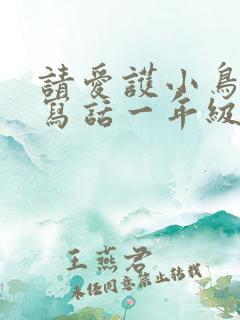 請愛護小鳥
寫話一年級
王燕君
未经同意禁止转载